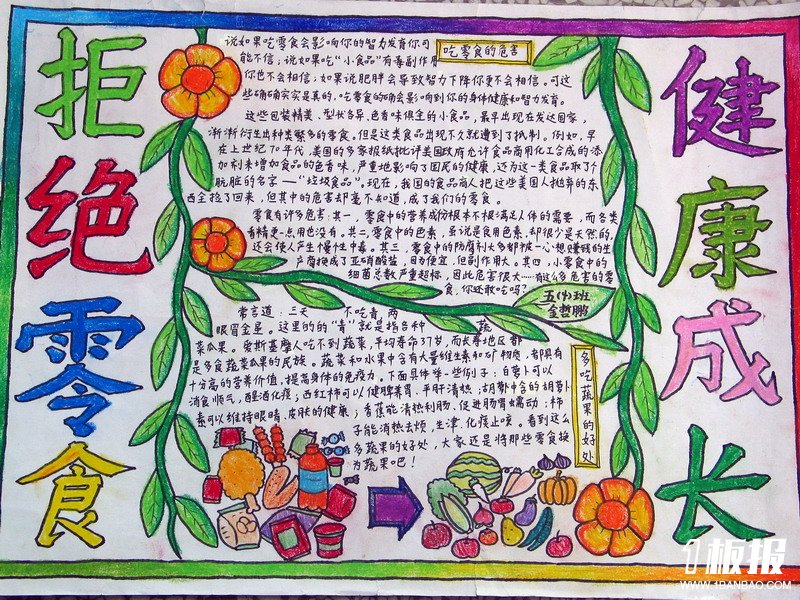 拒绝零食
健康成长
吃零食的危害
说如果吃零食会影响你的智力发育你可
能不信;说如果吃“小食品”有毒副作用
你也不会相信;如果说肥胖会导致智力下降你更不会相信。可这
些确确实实是真的,吃零食的确会影响到你的身体健康和智力发育。
这些包装精美、型状各异、色香味俱全的小食品,最早出现在发达国家,
渐渐衍生出种类繁多的零食。但是这类食品出现不久就遭到了抵制。例如,早
在上世纪70年代,美国的多家报纸批评美国政府允许食品商用化工合成的添
加剂来增加食品的色香味,严重地影响了国民的健康,还为这一类食品取了个
肮脏的名字——“垃圾食品”。现在,我国的食品商人把这些美国人抛弃的东
西全捡了回来,但其中的危害却毫不知道,成了我们的零食。
零食有许多危害:其一,零食中的营养成份根本不能满足人体的需要,而各类
香精更一点用也没有。其二,零食中的色素,虽说是食用色素,却很少是天然的,
还会使人产生慢性中毒。其三,零食中的防腐剂大多都被一心想赚钱的生
产商换成了亚硝酸盐,因为便宜,但副作用大。其四,小零食中的
细菌总数严重超标,因此危害很大……有这么多危害的零
食,你还敢吃吗?
五(4)班
金哲鹏
多吃蔬果的好处
常言道:三天 不吃青,两
眼冒金星。这里的的“青”就是指各种 蔬
菜瓜果。爱斯基摩人吃不到蔬菜,平均寿命37岁,而长寿地区都
是多食蔬菜瓜果的民族。蔬菜和水果中含有大量维生素和矿物质,都具有
十分高的营养价值,提高身体的免疫力。下面具体举一些例子:白萝卜可以
消食顺气,醒酒化痰;西红柿可以健脾养胃、平肝清热;胡萝卜中含的胡萝卜
素可以维持眼睛、皮肤的健康;香蕉能清热利肠,促进肠胃蠕动;柿
子能消热去烦,生津、化痰止咳。看到这么
多蔬果的好处,大家还是将那些零食换
为蔬果吧!
1板报
WWW.1BANBAO.COM